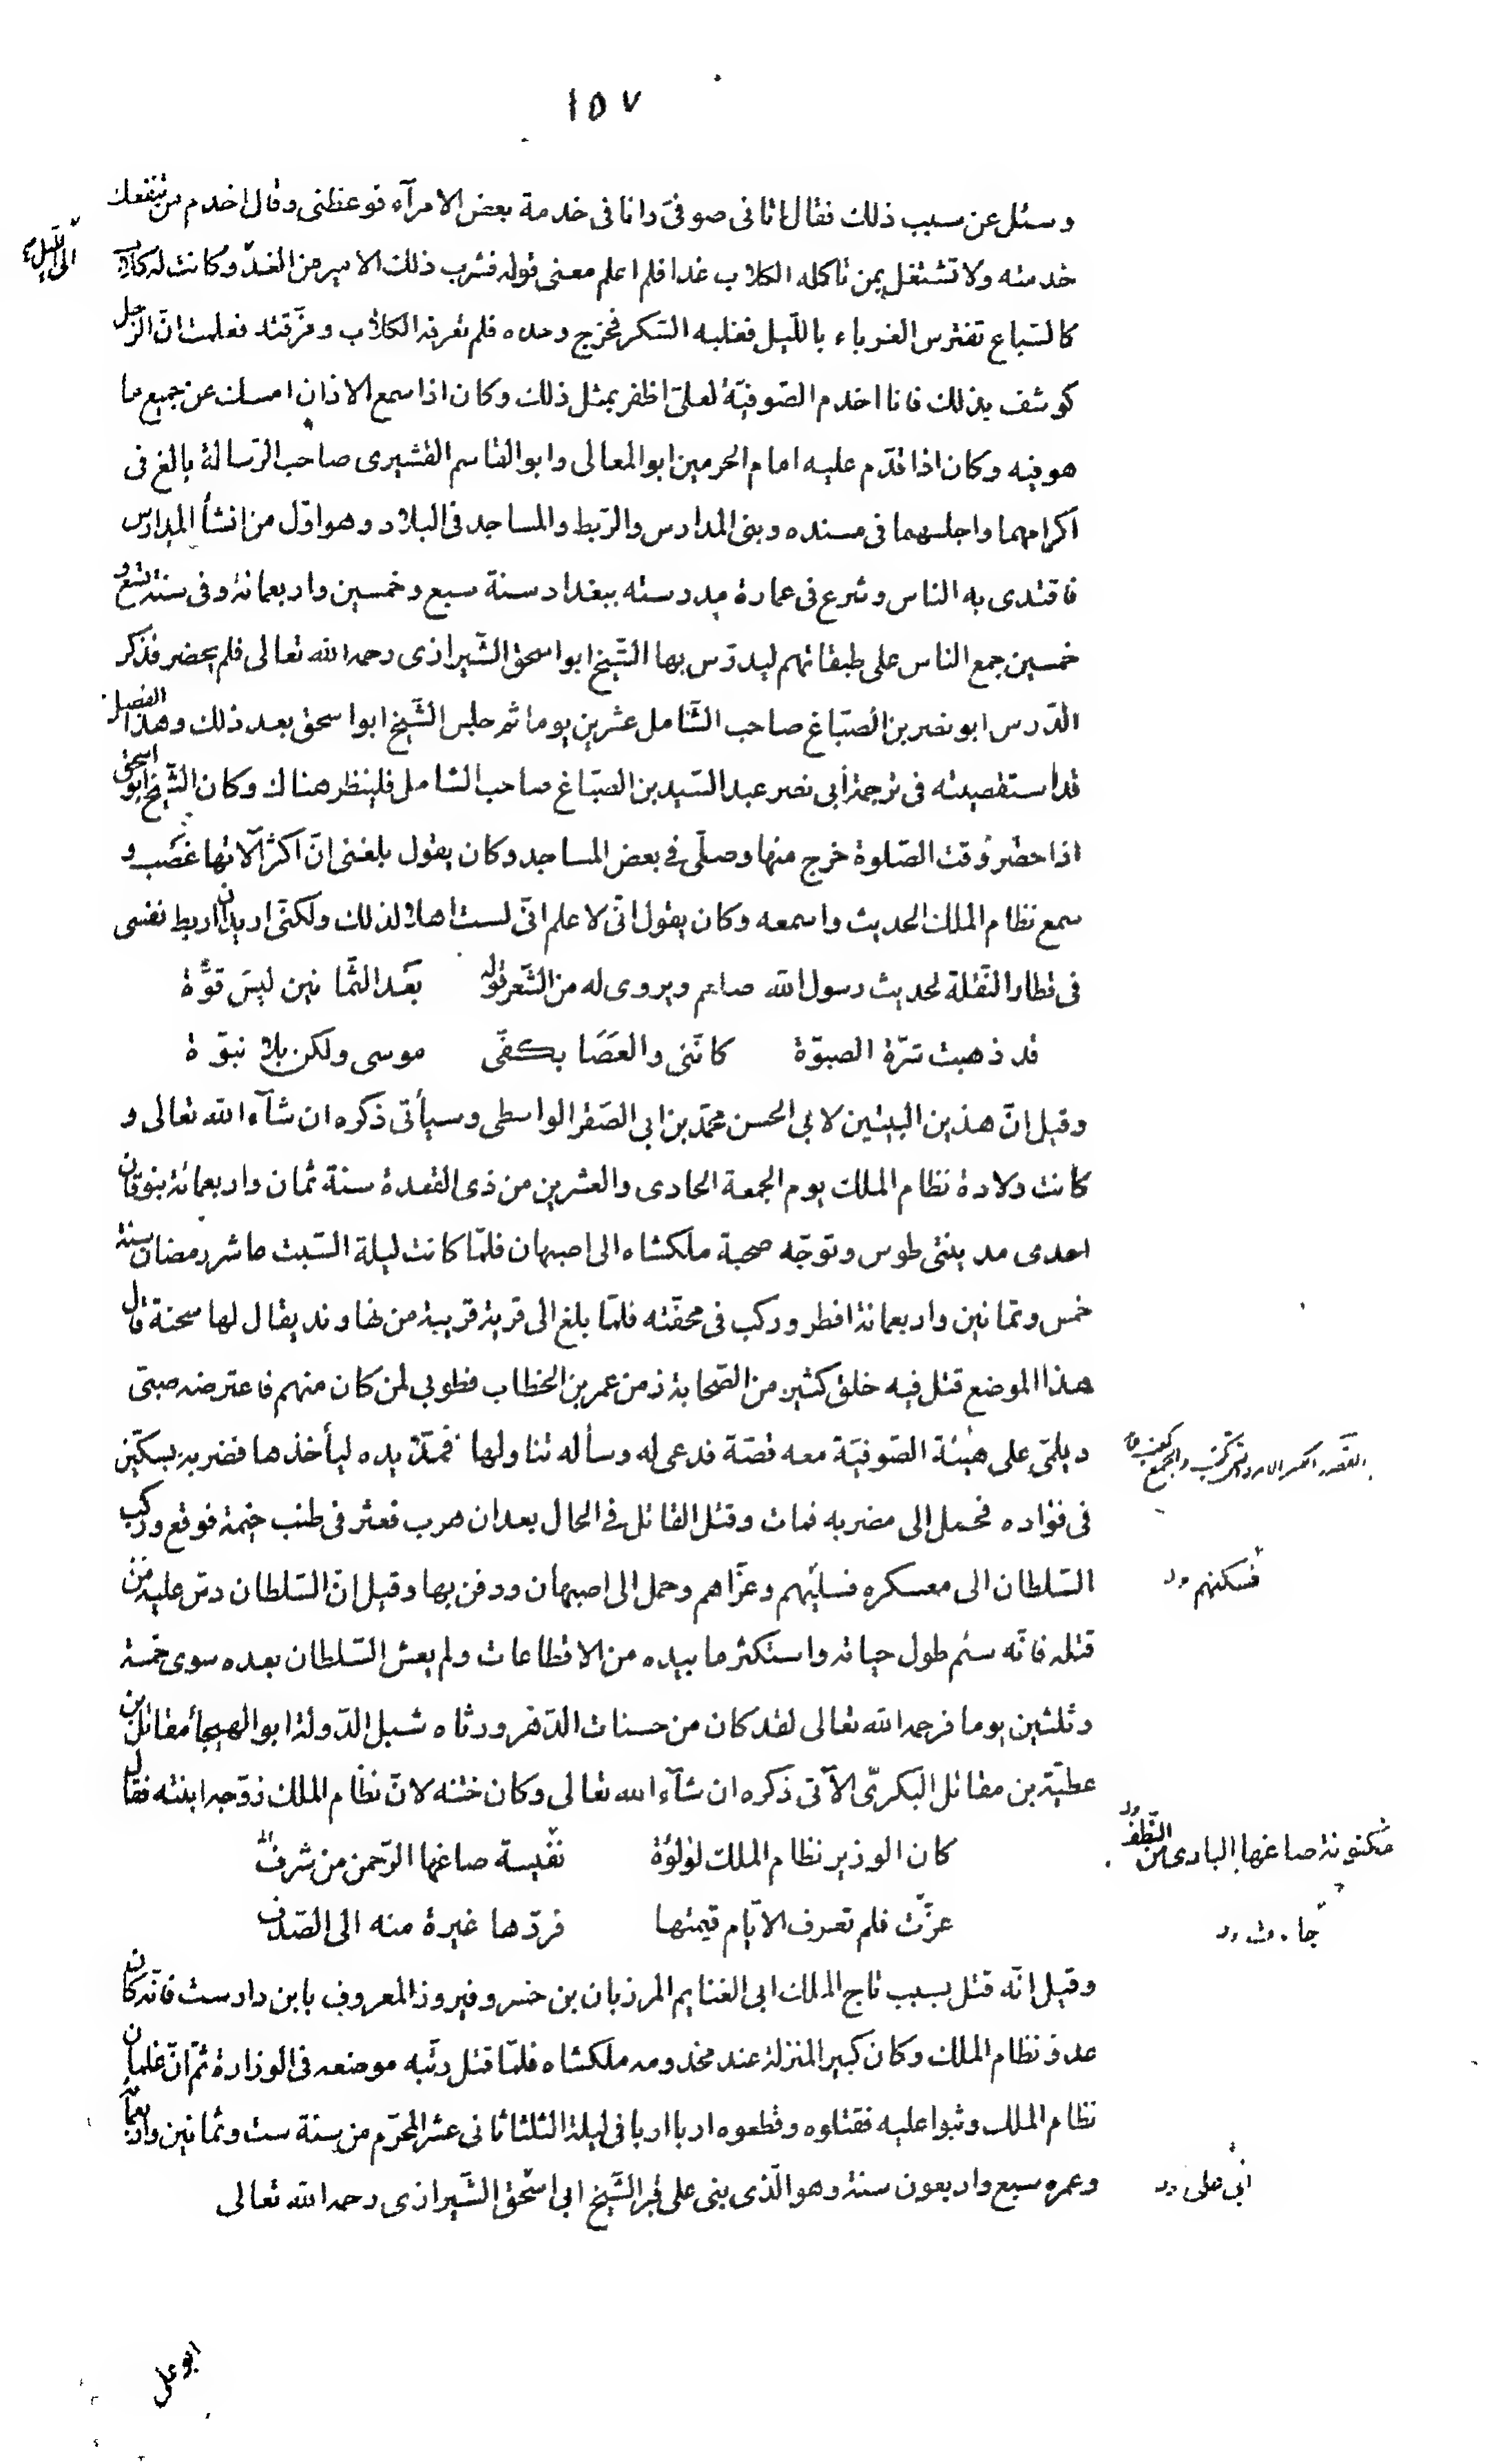 ١٥٧
وسئل عن سبب ذلك فقال اتانى صوفىّ وانا فى خدمة بعض الامرآء فوعظنى وقال اخدم من تنفعك
خدمته ولا تشتغل بمن تاكله الكلاب غدا فلم اعلم معنى قوله فشرب ذلك الامير من الغدّ وكانت له كلاب
الى اللّيل
كالسّباع تفترس الغرباء باللّيل فغلبه السّكر فخرج وحده فلم تعرفه الكلاب ومزّقته فعلمت انّ الرّجل
كوشف بذلك فانا اخدم الصّوفيّة لعلىّ اظفر بمثل ذلك وكان اذا سمع الاذان امسك عن جميع ما
هو فيه وكان اذا قدّم عليه امام الحرمين ابو المعالى وابو القاسم القشيرى صاحب الرّسالة بالغ فى
اكرامهما واجلسهما فى مسنده وبنى المدارس والرّبط والمساجد فى البلاد وهو اوّل من انشأ المدارس
فاقتدى به الناس وشرع فى عمارة مدرسته ببغداد سنة سبع وخمسين واربعمائة وفى سنة تسع و
خمسين جمع الناس على طبقاتهم ليدرّس بها الشّيخ ابو اسحق الشّيرازى رحمه الله تعالى فلم يحضر فذكر
الدّرس ابو نصر بن الصّبّاغ صاحب الشّامل عشرين يوما ثم جلس الشّيخ ابو اسحق بعد ذلك وهذا الفصل
قد استقصيته فى ترجمة أبى نصر عبد السّيد بن الصبّاغ صاحب الشامل فلينظر هناك وكان الشّيخ ابو اسحق
اذا حضر وقت الصّلوة خرج منها وصلّى فى بعض المساجد وكان يقول بلغنى انّ اكثر آلاتها غصب و
سمع نظام الملك الحديث واسمعه وكان يقول انّى لاعلم انّى لست اهلا لذلك ولكنّى اريد ان اربط نفسى
فى قطار النّقلة لحديث رسول الله صلعم ويروى له من الشّعر قوله بعد الثّمانين ليس قوّة
قد ذهبت شرّة الصبوّة كانّنى والعصا بكفّى موسى ولكن بلا نبوّة
وقيل انّ هذين البيتين لابى الحسن محمّد بن ابى الصّقر الواسطى وسيأتى ذكره ان شآء الله تعالى و
كانت ولادة نظام الملك يوم الجمعة الحادى والعشرين من ذى القعدة سنة ثمان واربعمائة بنوقان
احدى مدينتى طوس وتوجّه صحبة ملكشاه الى اصبهان فلمّا كانت ليلة السّبت عاشر رمضان سنة
خمس وثمانين واربعمائة افطر وركب فى محفّته فلمّا بلغ الى قرية قريبة من نهاوند يقال لها سحنة قال
هذا الموضع قتل فيه خلق كثير من الصّحابة زمن عمر بن الخطاب فطوبى لمن كان منهم فاعترضه صبىّ
ديلمىّ على هيئة الصّوفيّة معه قصّة فدعى له وسأله تناولها فمدّ يده ليأخذها فضربه بسكّين
فى فؤاده فحمل الى مضربه فمات وقتل القاتل فى الحال بعد ان هرب فعثر فى طنب خيمة فوقع وركب
السّلطان الى معسكره فسلّيهم وعزّاهم وحمل الى اصبهان ودفن بها وقيل انّ السّلطان دسّ عليه من
فسكنهم
قتله فانّه سئم طول حياته واستكثر ما بيده من الاقطاعات ولم يعش السّلطان بعده سوى خمسة
وثلثين يوما فرحمه الله تعالى لقد كان من حسنات الدّهر ورثاه شبل الدّولة ابو الهيجأ مقاتل بن
عطيّة بن مقاتل البكرىّ الآتى ذكره ان شآء الله تعالى وكان ختنه لانّ نظام الملك زوّجه ابنته فقال
كان الوزير نظام الملك لؤلؤة نفيسة صاغها الرّحمن من شرف
مكنونة صاغها البارى من النّطف
عزّت فلم تعرف الايّام قيمتها فردّها غيرة منه الى الصّدف
وقيل انّه قتل بسبب تاج الملك ابى الغنايم المرزبان بن خسرو فيروز المعروف بابن دارست فانّه كان
عدوّ نظام الملك وكان كبير المنزلة عند مخدومه ملكشاه فلمّا قتل رتّبه موضعه فى الوزارة ثمّ انّ غلمان
نظام الملك وثبوا عليه فقتلوه وقطعوه اربا اربا فى ليلة الثلثا ثانى عشر المحرّم من سنة ست وثمانين واربعمائة
وعمره سبع واربعون سنة وهو الّذى بنى على قبر الشّيخ ابى اسحق الشّيرازى رحمه الله تعالى
ابو على